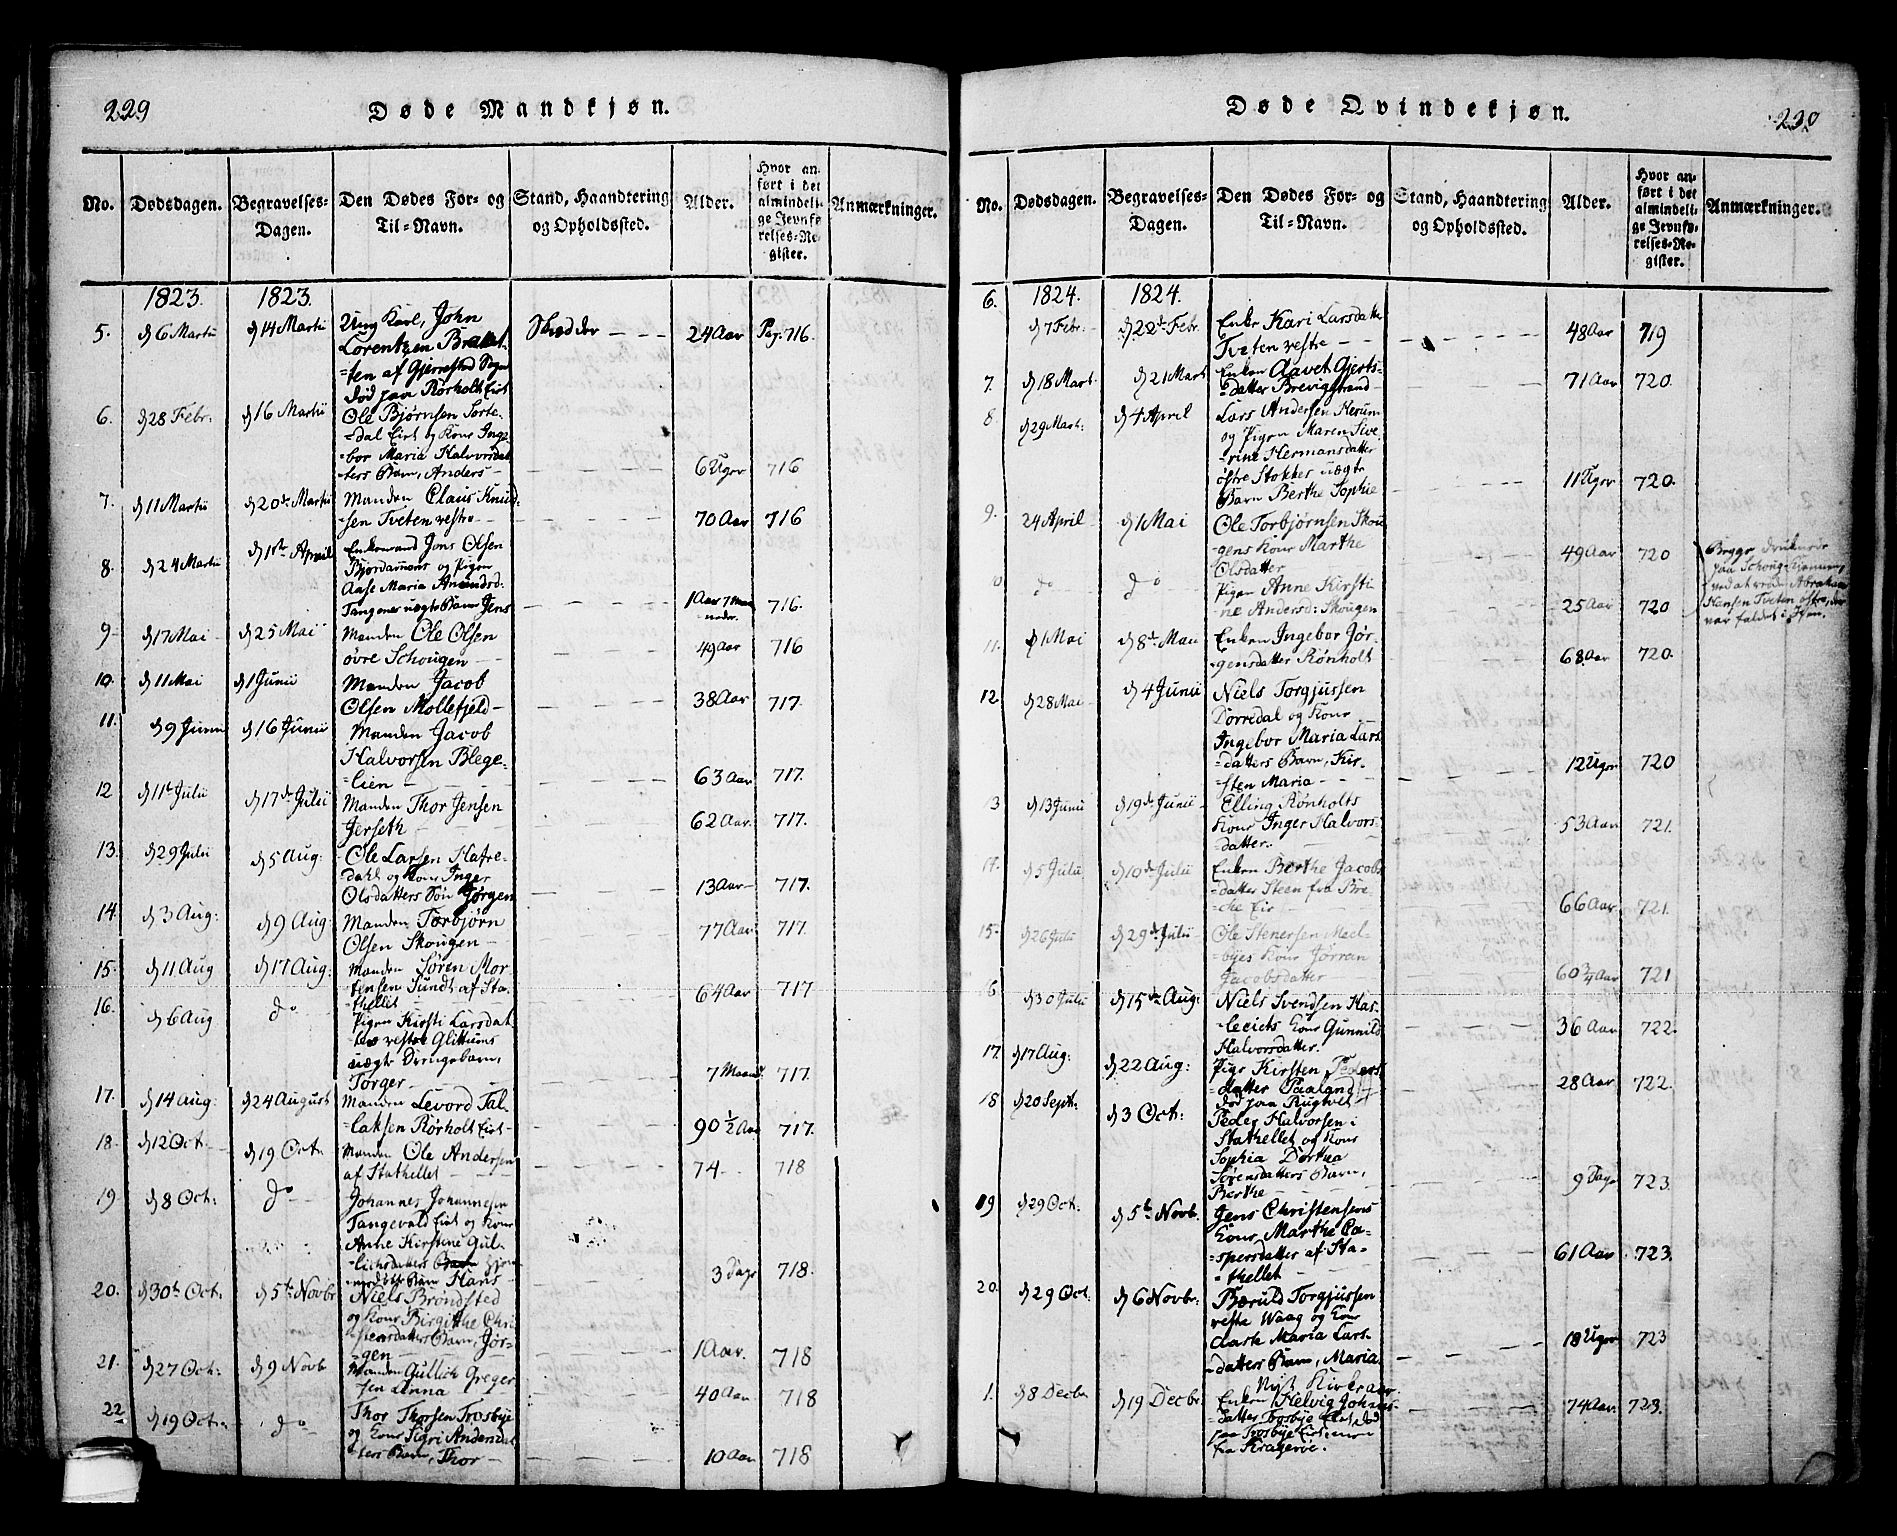 229
Døde Mandkjøn.
No. Dødsdagen. Begravelses-Dagen. Den Dødes For- og Til-Navn. Stand, Haandtering og Opholdssted. Alder. Hvor anført i det almindelige Jevnførelses-Register. Anmærkninger.
1823. 1823.
5. d 6 Martii d 14 Martii Ung Karl, John Skrædder 24 Aar Pag. 716.
Lorentzen
-ten af Gjerrestad Sogn
død paa Rörholt Eiet
6. d 28 Febr: d 16 Martii Ole Bjørnsen Sorte-
-dal Eiet og Kone Inge-
bor Maria Halvorsdat
-ters Barn, Anders - 6 Uger 716
7. d 11 Martii d 20de Martii Manden Claus Knud-
sen Tveten vestre - 70 Aar 716
8. d 24 Martii d 1ste April Enkemand Jens Olsen
og Pigen
Aase Maria
uægte Barn Jens 1 Aar 7 Maaneder. 716.
9 d 17 Mai d 25 Mai Manden Ole Olsen
øvre Schougen 49 Aar 716
10. d 11 Mai d 1 Junii Manden Jacob
Olsen Mollefjeld - 38 Aar 717.
11. d 9 Junii d 16 Junii Manden Jacob
Halvorsen Blege-
-lien 63 Aar 717.
12 d 11te Julii d 17de Julii Manden Thor Jensen
Jerseth 62 Aar. 717.
13. d 29 Julii d 5 Aug: Ole Larsen Hafre-
dahl og Kone Inger
Olsdatters Søn Jørgen 13 Aar 717.
14. d 3 Aug: d 9 Aug: Manden Torbjørn
Olsen Skougen 77 Aar 717.
15. d 11 Aug d 17 Aug: Manden Søren Mor
tensen Sundt af Sta-
thellet 64 Aar 717
16. d 6 Aug do Pigen Kirsti Larsdat
ters vestre Glittums
uægte Drengebarn,
Torger 7 Maand. 717.
17. d 14 Aug: d 24 August Manden Levord Tal-
laksen Rörholt Eiet 90 1/2 Aar 717.
18. d 12 Oct d 19 Oct. Manden Ole Andersen
af Stathellet 74 718
19 d 8 Oct: do Johannes Johannesen
Tangevald Eiet og Kone
Anne Kirstine Gul-
-lichsdatters Barn
Barn Hans 3 Dage 718.
20. d 30te Oct: d 5te Novbr Niels Brøndsted
og Kone Birgithe Chri
stensdatters Barn, Jør-
-gen 1 Aar. 718
21. d 27 Oct: d 9 Novb Manden Gullich Greger
sen Linna 40 Aar 718
22 d 19 Oct. do Thor Thorsen Trosbye
og Kone Sigri Andersdat
ters Barn, Thor 10 Aar 718
230
Døde Qvindekjøn.
No. Dødsdagen. Begravelses-Dagen. Den Dødes For- og Til-Navn. Stand, Haandtering og Opholdssted. Alder. Hvor anført i det almindelige Jevnførelses-Register. Anmærkninger.
1824. 1824.
6. d 7 Febr: d 22de Febr. Enke Kari Larsdatter
Tveten vestre 48 Aar 719
7. d 18 Mart. d 21 Mart Enken Aavet Gjerts-
-datter Brevigstrand 71 Aar 720.
8. d 29 Mart: d 4 April Lars Andersen Herum
og Pigen Maren Sive-
rine Hermansdatter
østre Stokkes uægte
Barn Berthe Sophie 11 Uger 720.
9. 24 April d 1 Mai Ole Torbjørnsen Skou
gens Kone Marthe
Olsdatter 49 Aar 720
Begge druknede
paa Schoug-Tjennen,
ved at redde Abraham
Hansen Tveten østre, der
var faldet i Isen.
10. do do Pigen Anne Kirsti
ne Andersd: Skougen 25 Aar 720
11. d 1 Mai d 8de Mai Enken Ingebor Jør-
gensdatter Rønholt 68 Aar 720.
12 d 28 Mai d 4 Junii Niels Torgjussen
Dørredal og Kone
Ingebor Maria Lars
datters Barn, Kir-
-sten Maria 12 Uger 720
13 d 13 Junii d 19de Junii Elling Rønholts
Kone Inger Halvors-
-datter. 53 Aar 721.
14. d 5 Julii d 10de Julii Enken Berthe Jacobs
-datter Steen fra Bre-
66 Aar 721.
15. d 26 Julii d 29de Julii Ole Stenersen Mæl-
byes Kone Jørran
Jacobsdatter 60 3/4 Aar 721
16 d 30 Julii d 15de Aug: Niels Svendsen Has-
-lecicts Kone Gunnild
Halvorsdatter. 36 Aar 722.
17. d 17 Aug: d 22 Aug: Pige Kirsten Peders
-datter Paaland
død paa Rugtvet 28 Aar 722.
18 d 20 Sept: d 3 Oct: Peder Halvorsen i
Stathellet og Kone
Sophia Dorthea
Sørensdatters Barn,
Berthe 9 Dage 723.
19 d 29 Oct. d 5te Novb. Jens Christensens
Kone, Marthe Ca-
-spersdatter af Sta-
-thellet 61 Aar 723.
20. d 29 Oct. d 6 Novbr: Bæruld Torgjussen
vestre Waag og Kone
Aase Maria Lars-
datters Barn, Maria 18 Uger 723
Nyt Kirkeaar
1. d 8 Decbr d 19 Decbr: Enken Helvig Johans-
datter Trosbye Eiet, død
paa Trosbye Eiet,
fra Kragerøe. 74 Aar. 723.